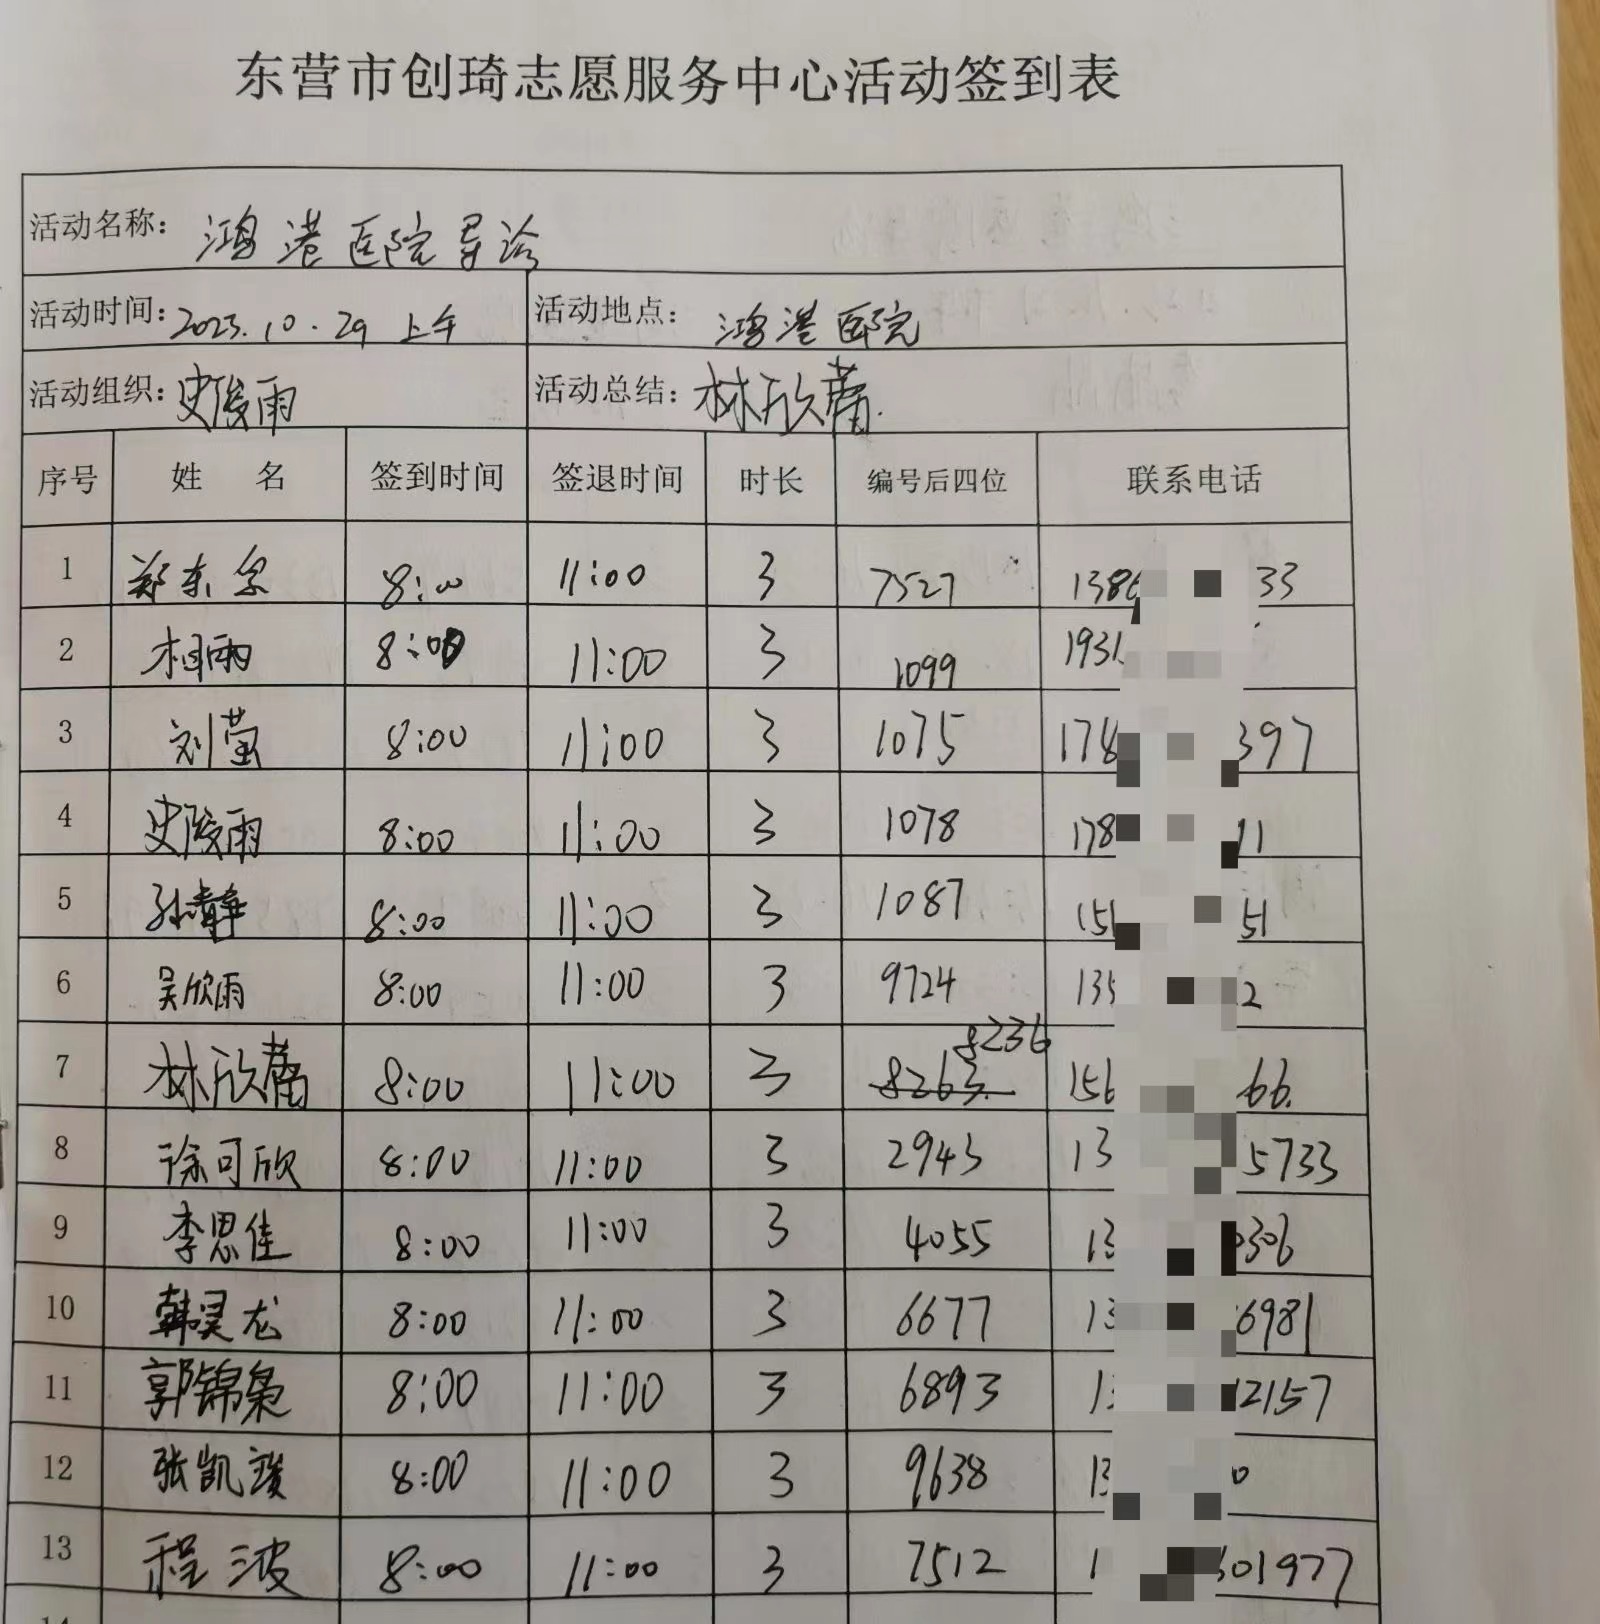 东营市创琦志愿服务中心活动签到表
活动名称: 鸿港医院导诊
活动时间: 2023.10.29 上午 活动地点: 鸿港医院
活动组织: 史陵雨 活动总结: 林欣蕾.
序号 姓 名 签到时间 签退时间 时长 编号后四位 联系电话
1 郑东 8:00 11:00 3 7527 138 33
2 相雨 8:00 11:00 3 1099 1931
3 刘萤 8:00 11:00 3 1075 178 397
4 史陵雨 8:00 11:00 3 1078 178 11
5 孙靖 8:00 11:00 3 1087 151 51
6 吴欣雨 8:00 11:00 3 9724 135 2
8236
7 林欣蕾 8:00 11:00 3 8263. 156 66.
8 徐可欣 8:00 11:00 3 2943 13 5733
9 李思佳 8:00 11:00 3 4055 13 0306
10 韩昊龙 8:00 11:00 3 6677 13 6981
11 郭锦枭 8:00 11:00 3 6893 13 2157
12 张凯竣 8:00 11:00 3 9638 13 0
13 程波 8:00 11:00 3 7512 1 601977